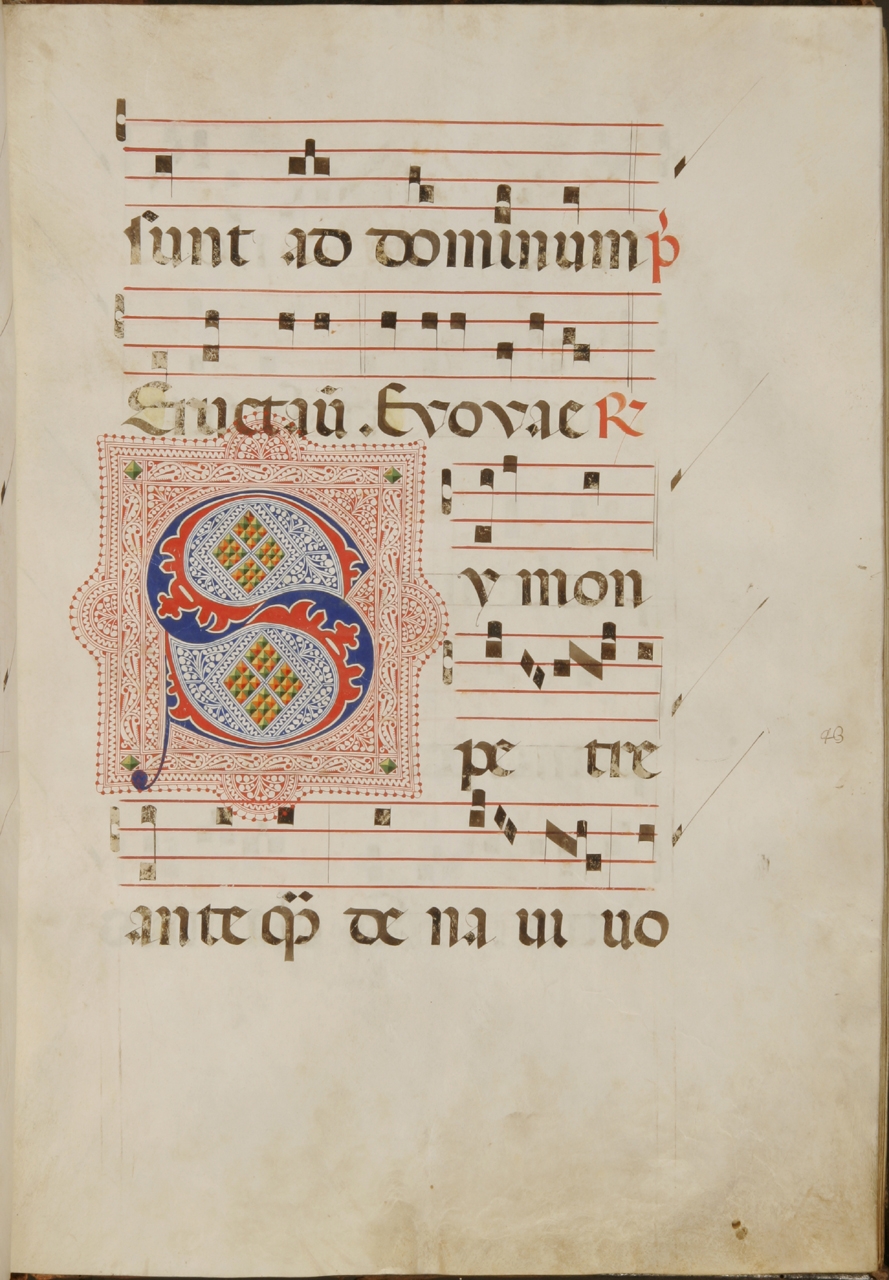 sunt ad dominum p̄
Eructaū . Evovae R
S y mon
pe tre
an te q̄ꝫ de na ui uo
43